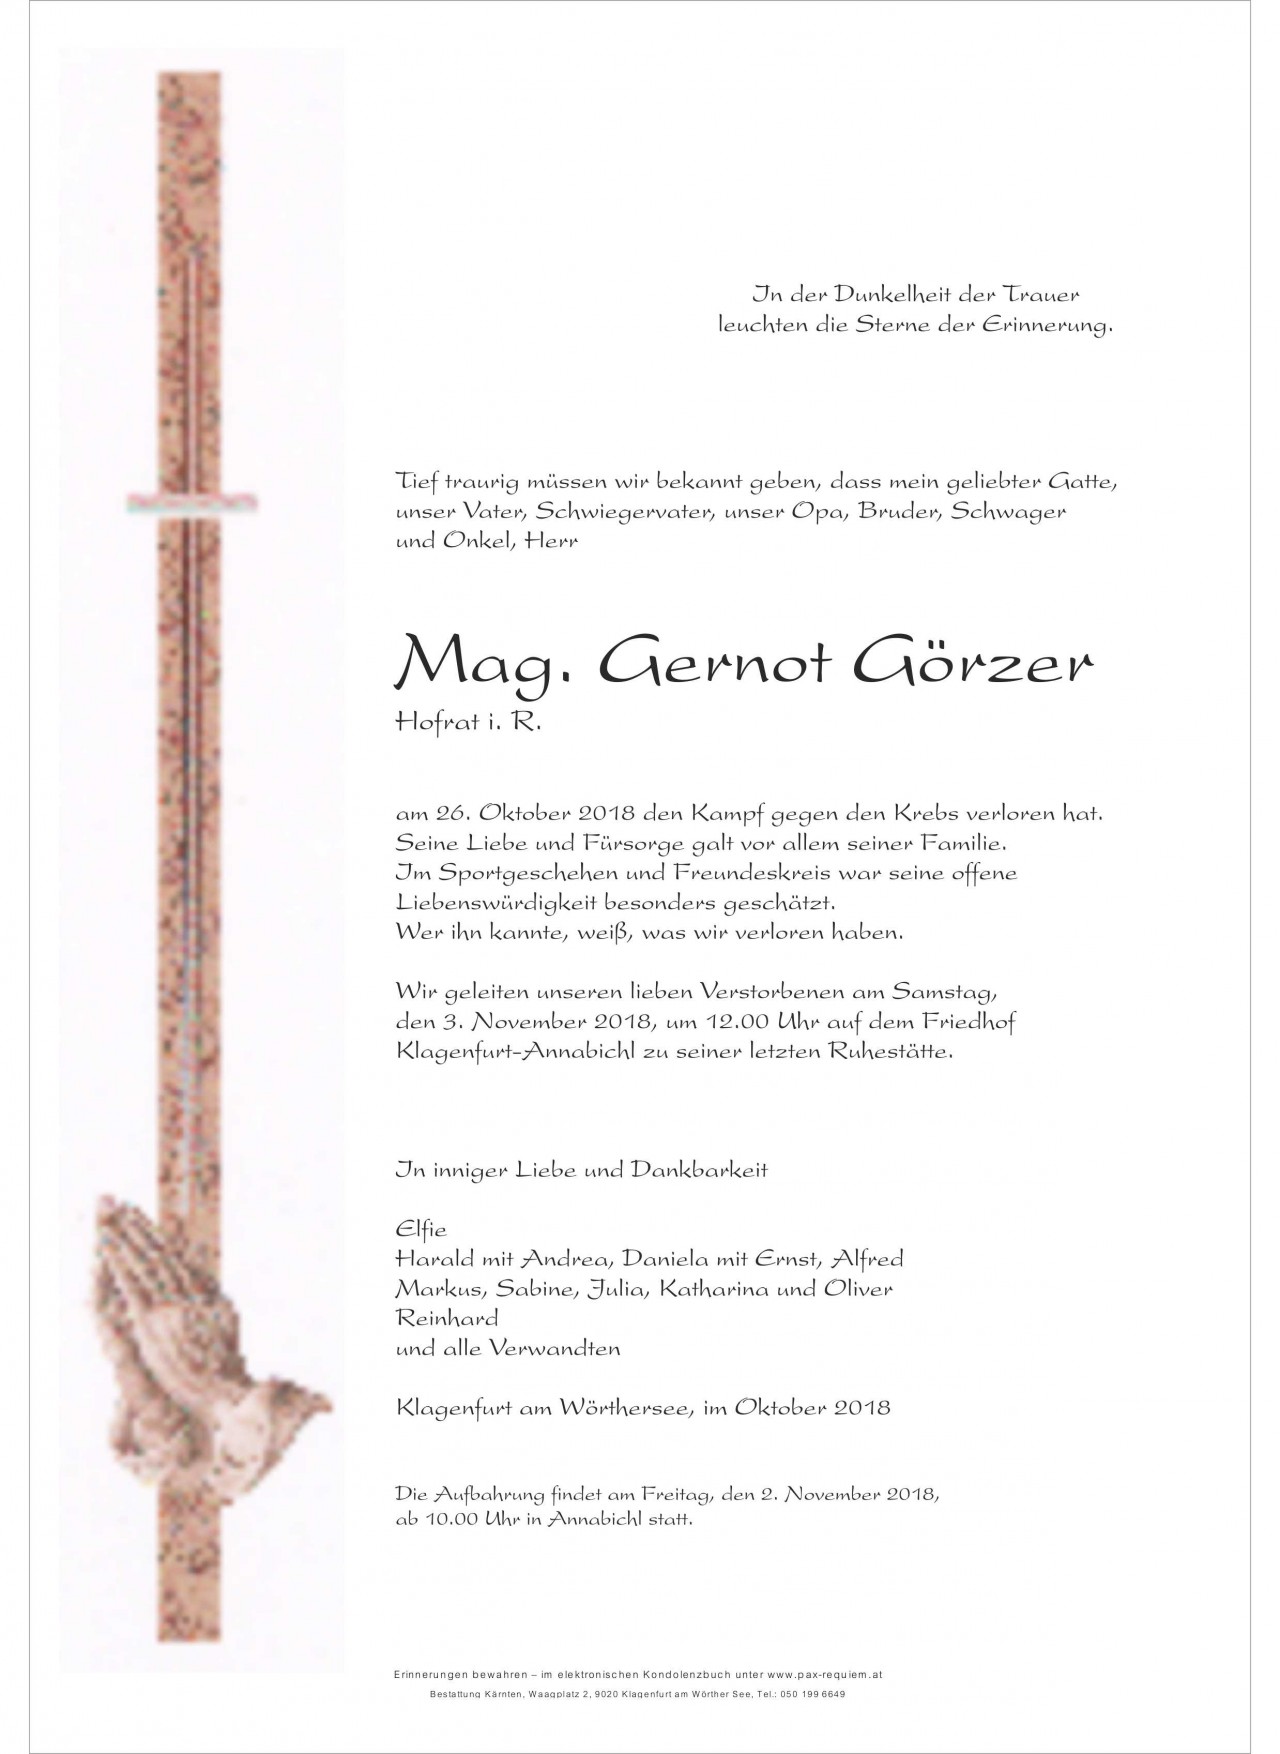 In der Dunkelheit der Trauer
leuchten die Sterne der Erinnerung.
Tief traurig müssen wir bekannt geben, dass mein geliebter Gatte,
unser Vater, Schwiegervater, unser Opa, Bruder, Schwager
und Onkel, Herr
Mag. Gernot Görzer
Hofrat i. R.
am 26. Oktober 2018 den Kampf gegen den Krebs verloren hat.
Seine Liebe und Fürsorge galt vor allem seiner Familie.
Im Sportgeschehen und Freundeskreis war seine offene
Liebenswürdigkeit besonders geschätzt.
Wer ihn kannte, weiß, was wir verloren haben.
Wir geleiten unseren lieben Verstorbenen am Samstag,
den 3. November 2018, um 12.00 Uhr auf dem Friedhof
Klagenfurt-Annabichl zu seiner letzten Ruhestätte.
In inniger Liebe und Dankbarkeit
Elfie
Harald mit Andrea, Daniela mit Ernst, Alfred
Markus, Sabine, Julia, Katharina und Oliver
Reinhard
und alle Verwandten
Klagenfurt am Wörthersee, im Oktober 2018
Die Aufbahrung findet am Freitag, den 2. November 2018,
ab 10.00 Uhr in Annabichl statt.
Erinnerungen bewahren – im elektronischen Kondolenzbuch unter www.pax-requiem.at
Bestattung Kärnten, Waagplatz 2, 9020 Klagenfurt am Wörther See, Tel.: 050 199 6649